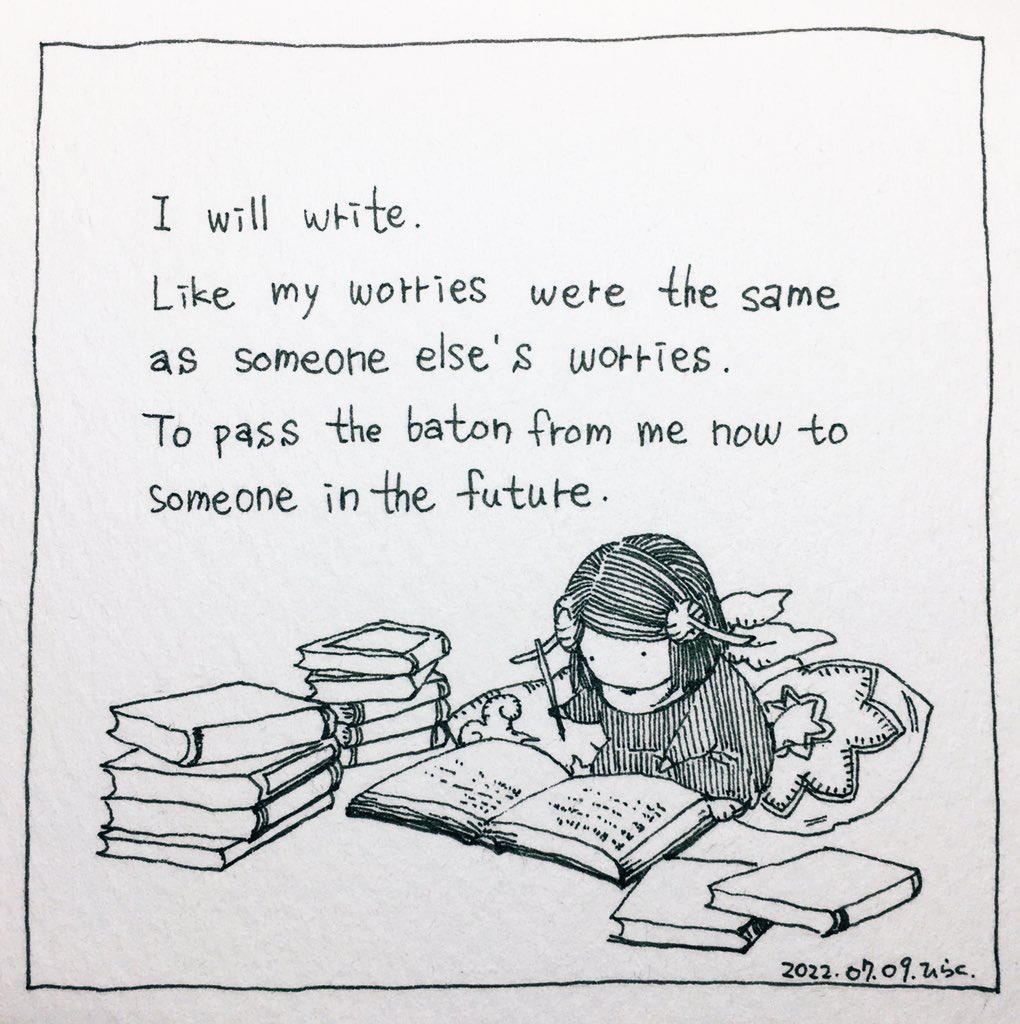 I will write.
Like my worries were the same
as someone else's worries.
To pass the baton from me now to
someone in the future.
2022.07.09.ひらく.